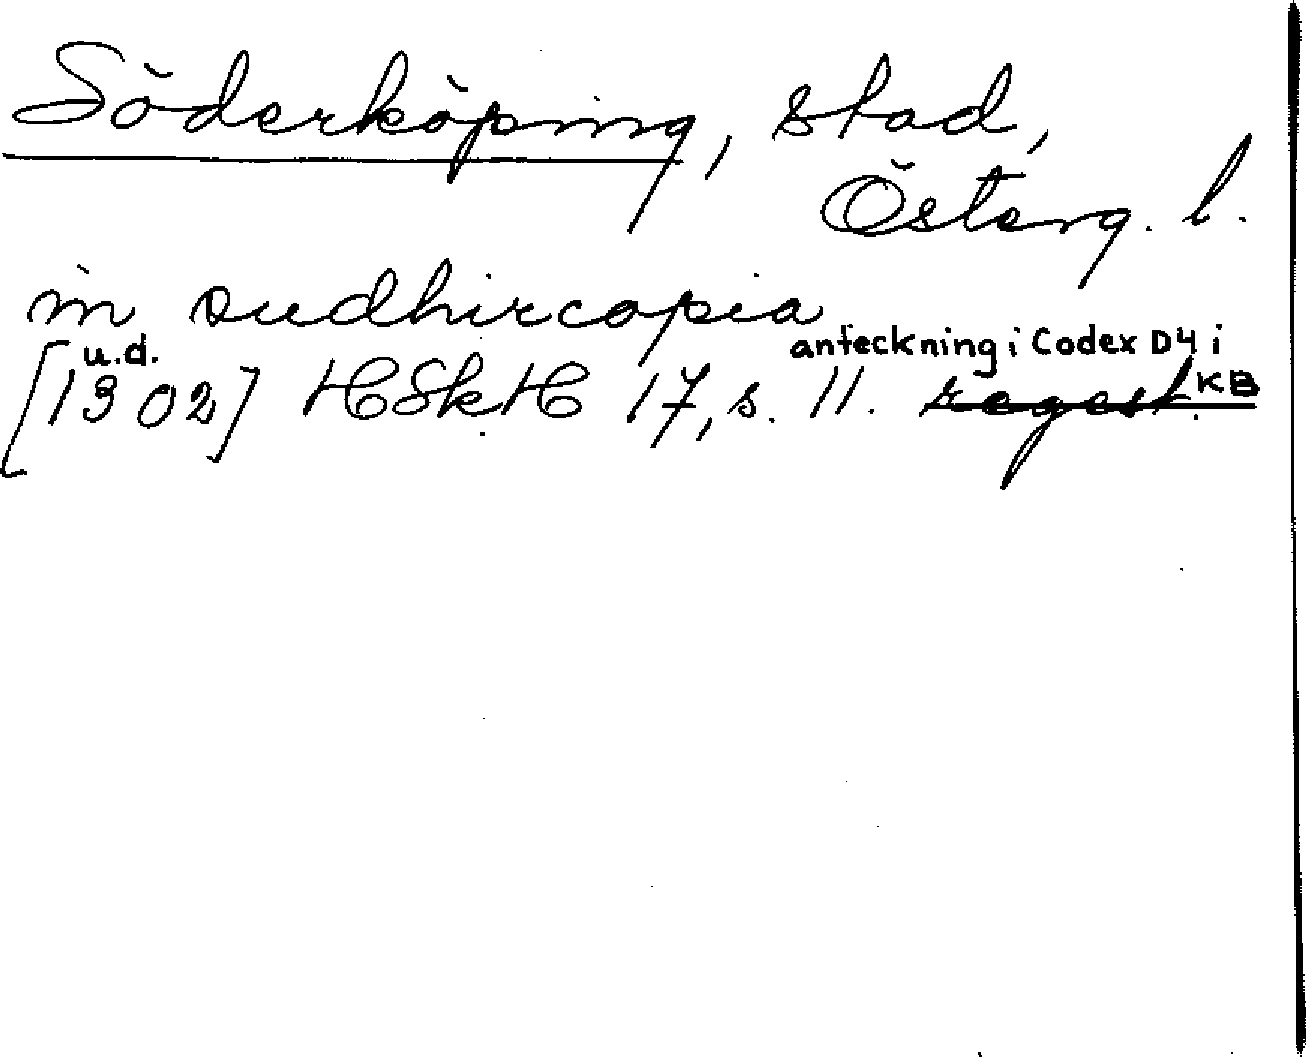 Söderköping, stad,
Österg. l.
in sudhircopia
u.d. anteckning i Codex D4 i
[1302] HSkH 17, s. 11. regest. KB